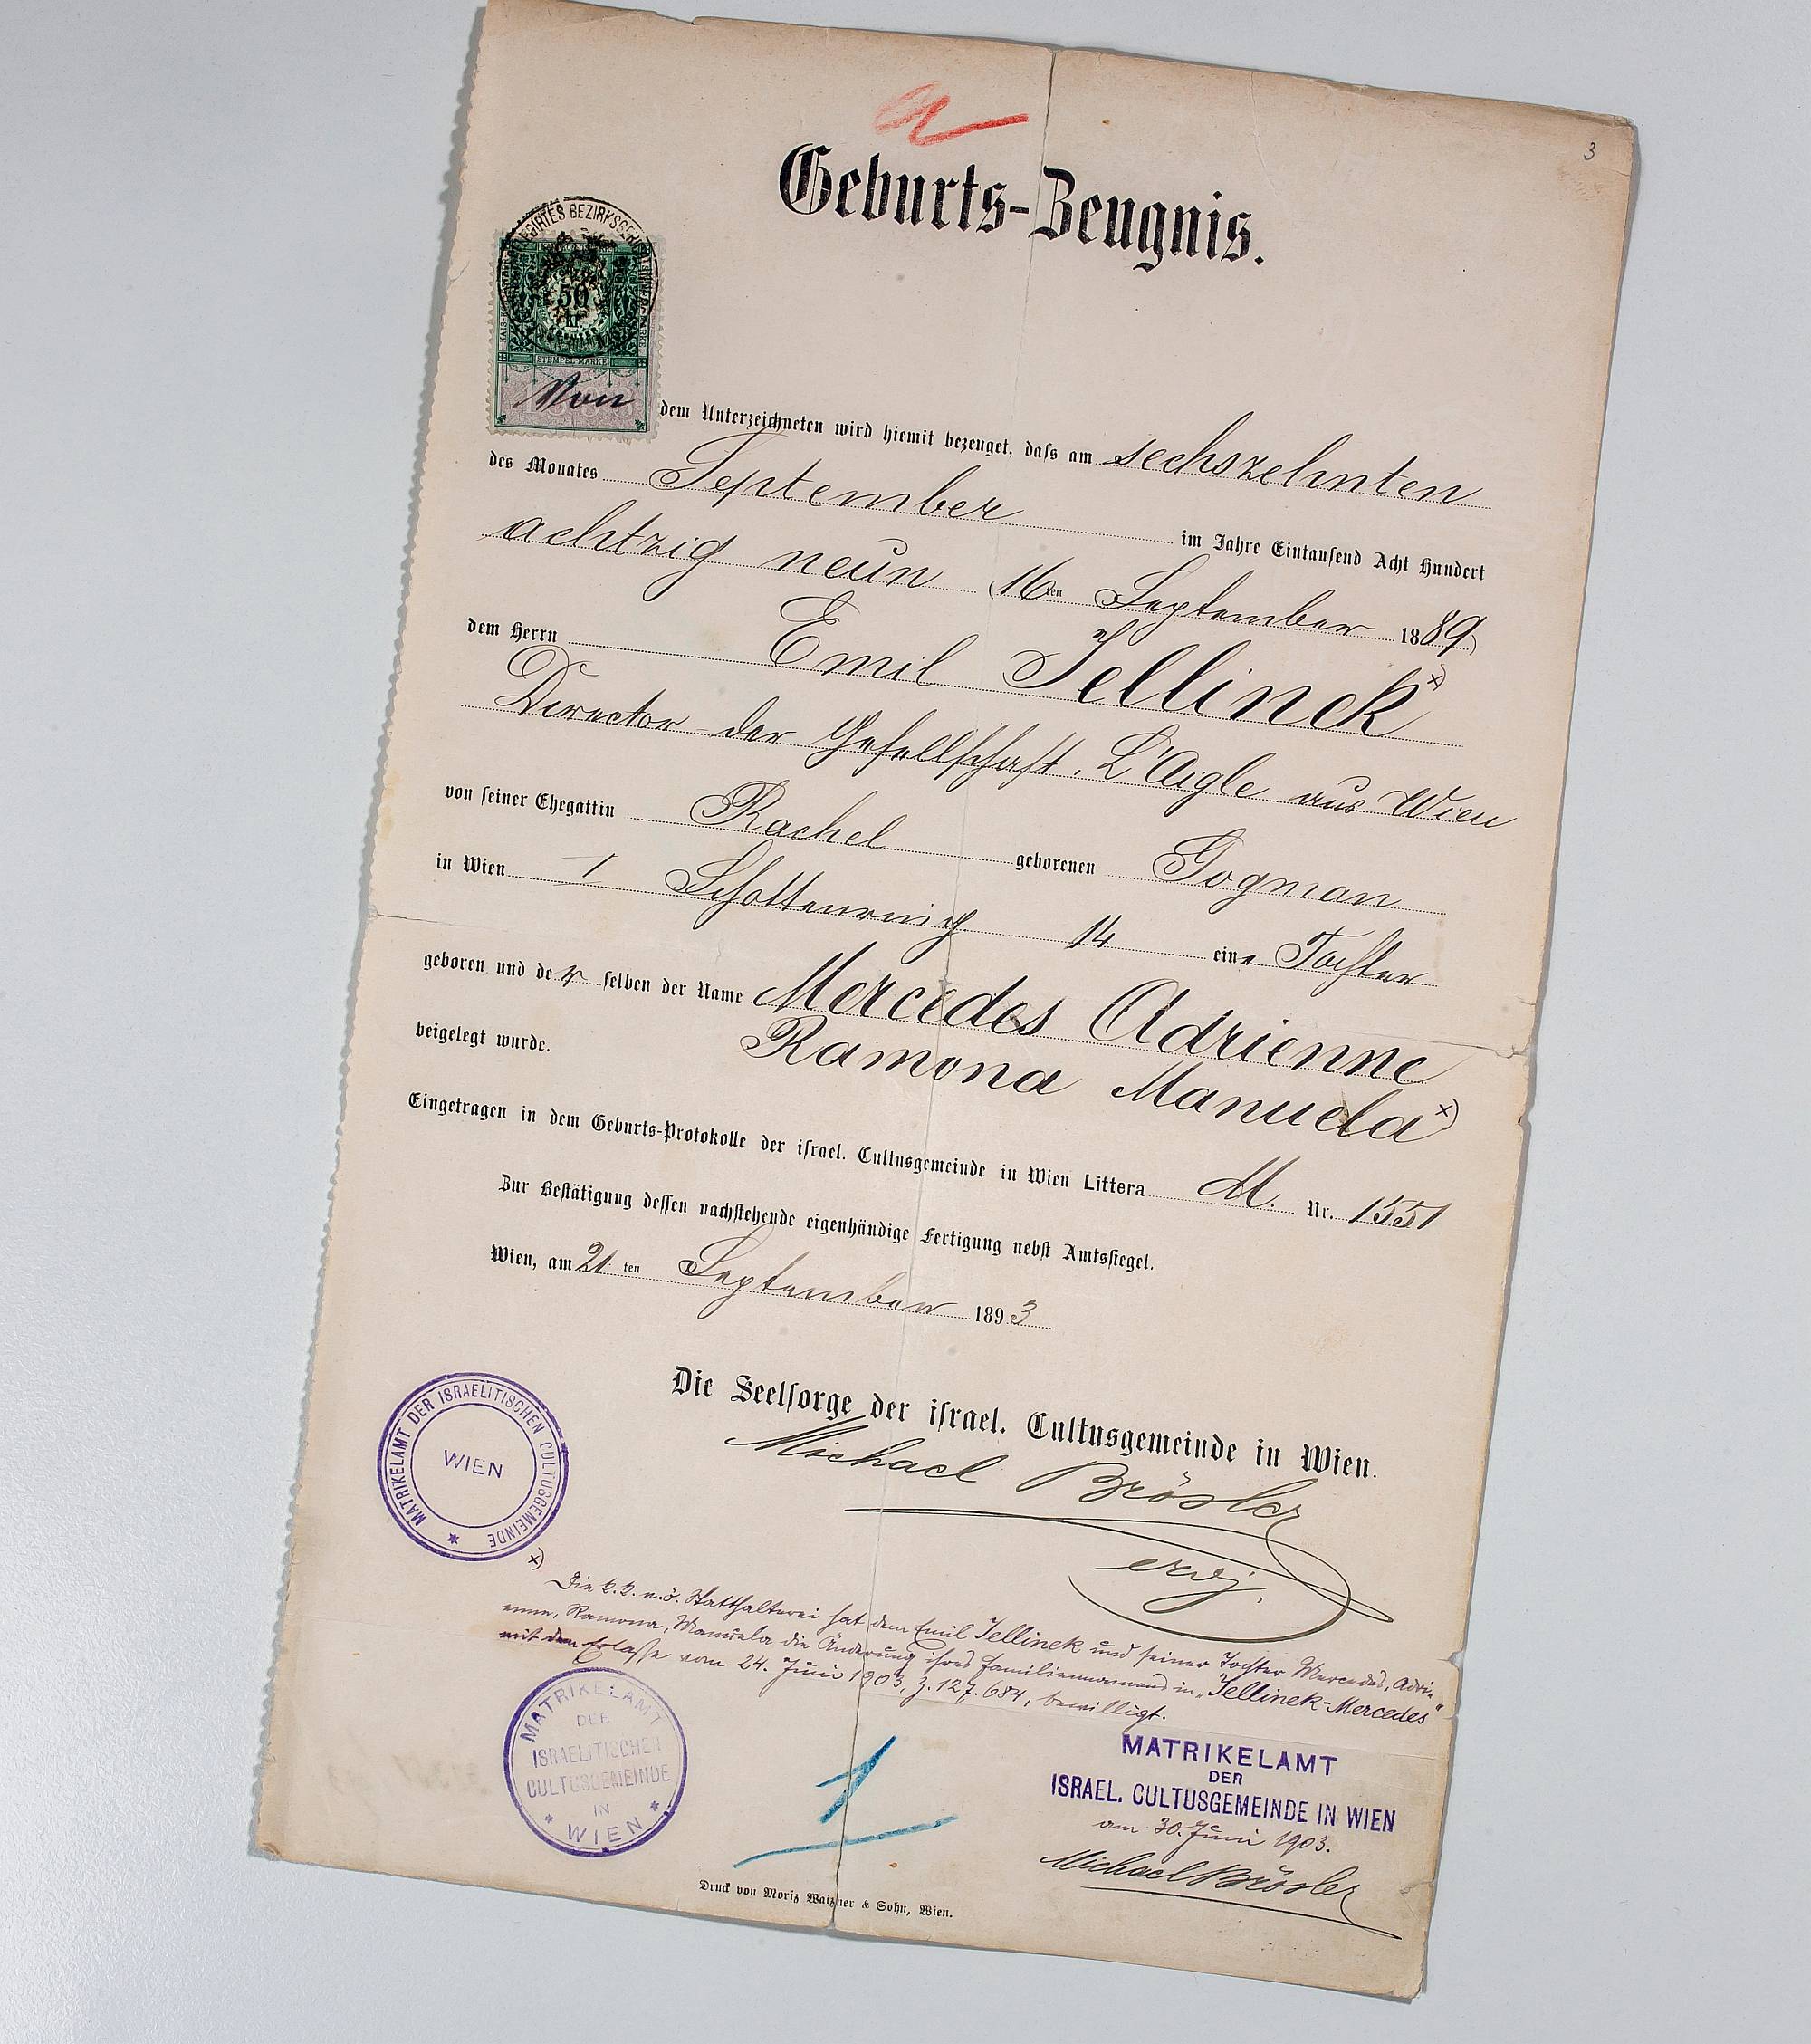 a
3
Geburts-Zeugnis.
50
KR
STEMPEL-MARKE
Von dem Unterzeichneten wird hiemit bezeuget, daſs am sechszehnten
des Monates September im Jahre Eintauſend Acht Hundert
achtzig neun (16ten September 1889)
dem Herrn Emil Jellinek x)
Director der Geſellſchaft „L'Aigle aus Wien
von ſeiner Ehegattin Rachel geborenen Gogman
in Wien I Schottenring 14 eine Tochter
geboren und der ſelben der Name Mercedes Adrienne
beigelegt wurde. Ramona Manuela x)
Eingetragen in dem Geburts-Protokolle der iſrael. Cultusgemeinde in Wien Littera M. Nr. 1551
Zur Beſtätigung deſſen nachſtehende eigenhändige Fertigung nebſt Amtsſiegel.
Wien, am 21 ten September 1893
Die Seelſorge der iſrael. Cultusgemeinde in Wien.
Michael Brösler
MATRIKELAMT DER ISRAELITISCHEN CULTUSGEMEINDE
WIEN
x) Die k.k. n.ö. Statthalterei hat dem Emil Jellinek und ſeiner Tochter Mercedes, Adri-
enne, Ramona, Manuela die Änderung ihres Familiennamens in „Jellinek-Mercedes"
mit dem Erlaſſe vom 24. Juni 1903, Z. 127.684, bewilligt.
MATRIKELAMT
DER
ISRAELITISCHEN
CULTUSGEMEINDE
IN
WIEN
1
MATRIKELAMT
DER
ISRAEL. CULTUSGEMEINDE IN WIEN
am 30. Juni 1903.
Michael Brösler
Druck von Moriz Waizner & Sohn, Wien.